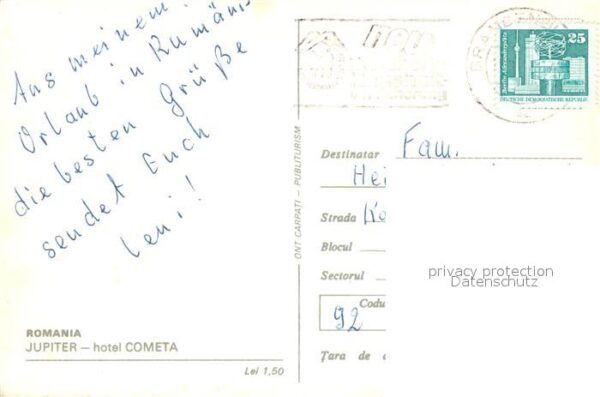 Aus meinem
Urlaub in Rumänien
die besten Grüße
sendet Euch
Leni!
ROMANIA
JUPITER – hotel COMETA
Lei 1,50
ONT CARPATI – PUBLITURISM
25
Berlin, Alexanderplatz
DEUTSCHE DEMOKRATISCHE REPUBLIK
Destinatar Fam.
Hei
Strada Ke
Blocul
Sectorul
privacy protection
Datenschutz
Codul
92
Țara de d